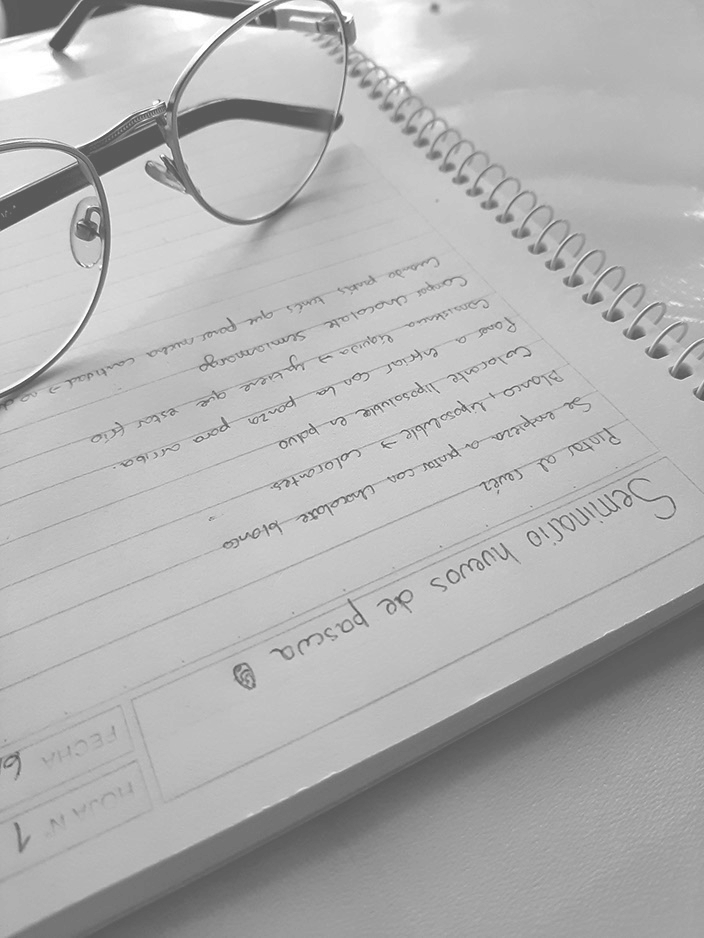 HOJA N° 1
FECHA 6
Seminario huevos de pascua
Pintar al revéz
Se empieza a pintar con chocolate blanco
Blanco, liposoluble → colorantes
Colorante liposoluble en polvo
Poner a enfriar con la panza para arriba.
Consistencia líquida → ya tiene que estar frío
Comprar chocolate semiamargo
Cuando pintás, tenés que poner mucha cantidad →